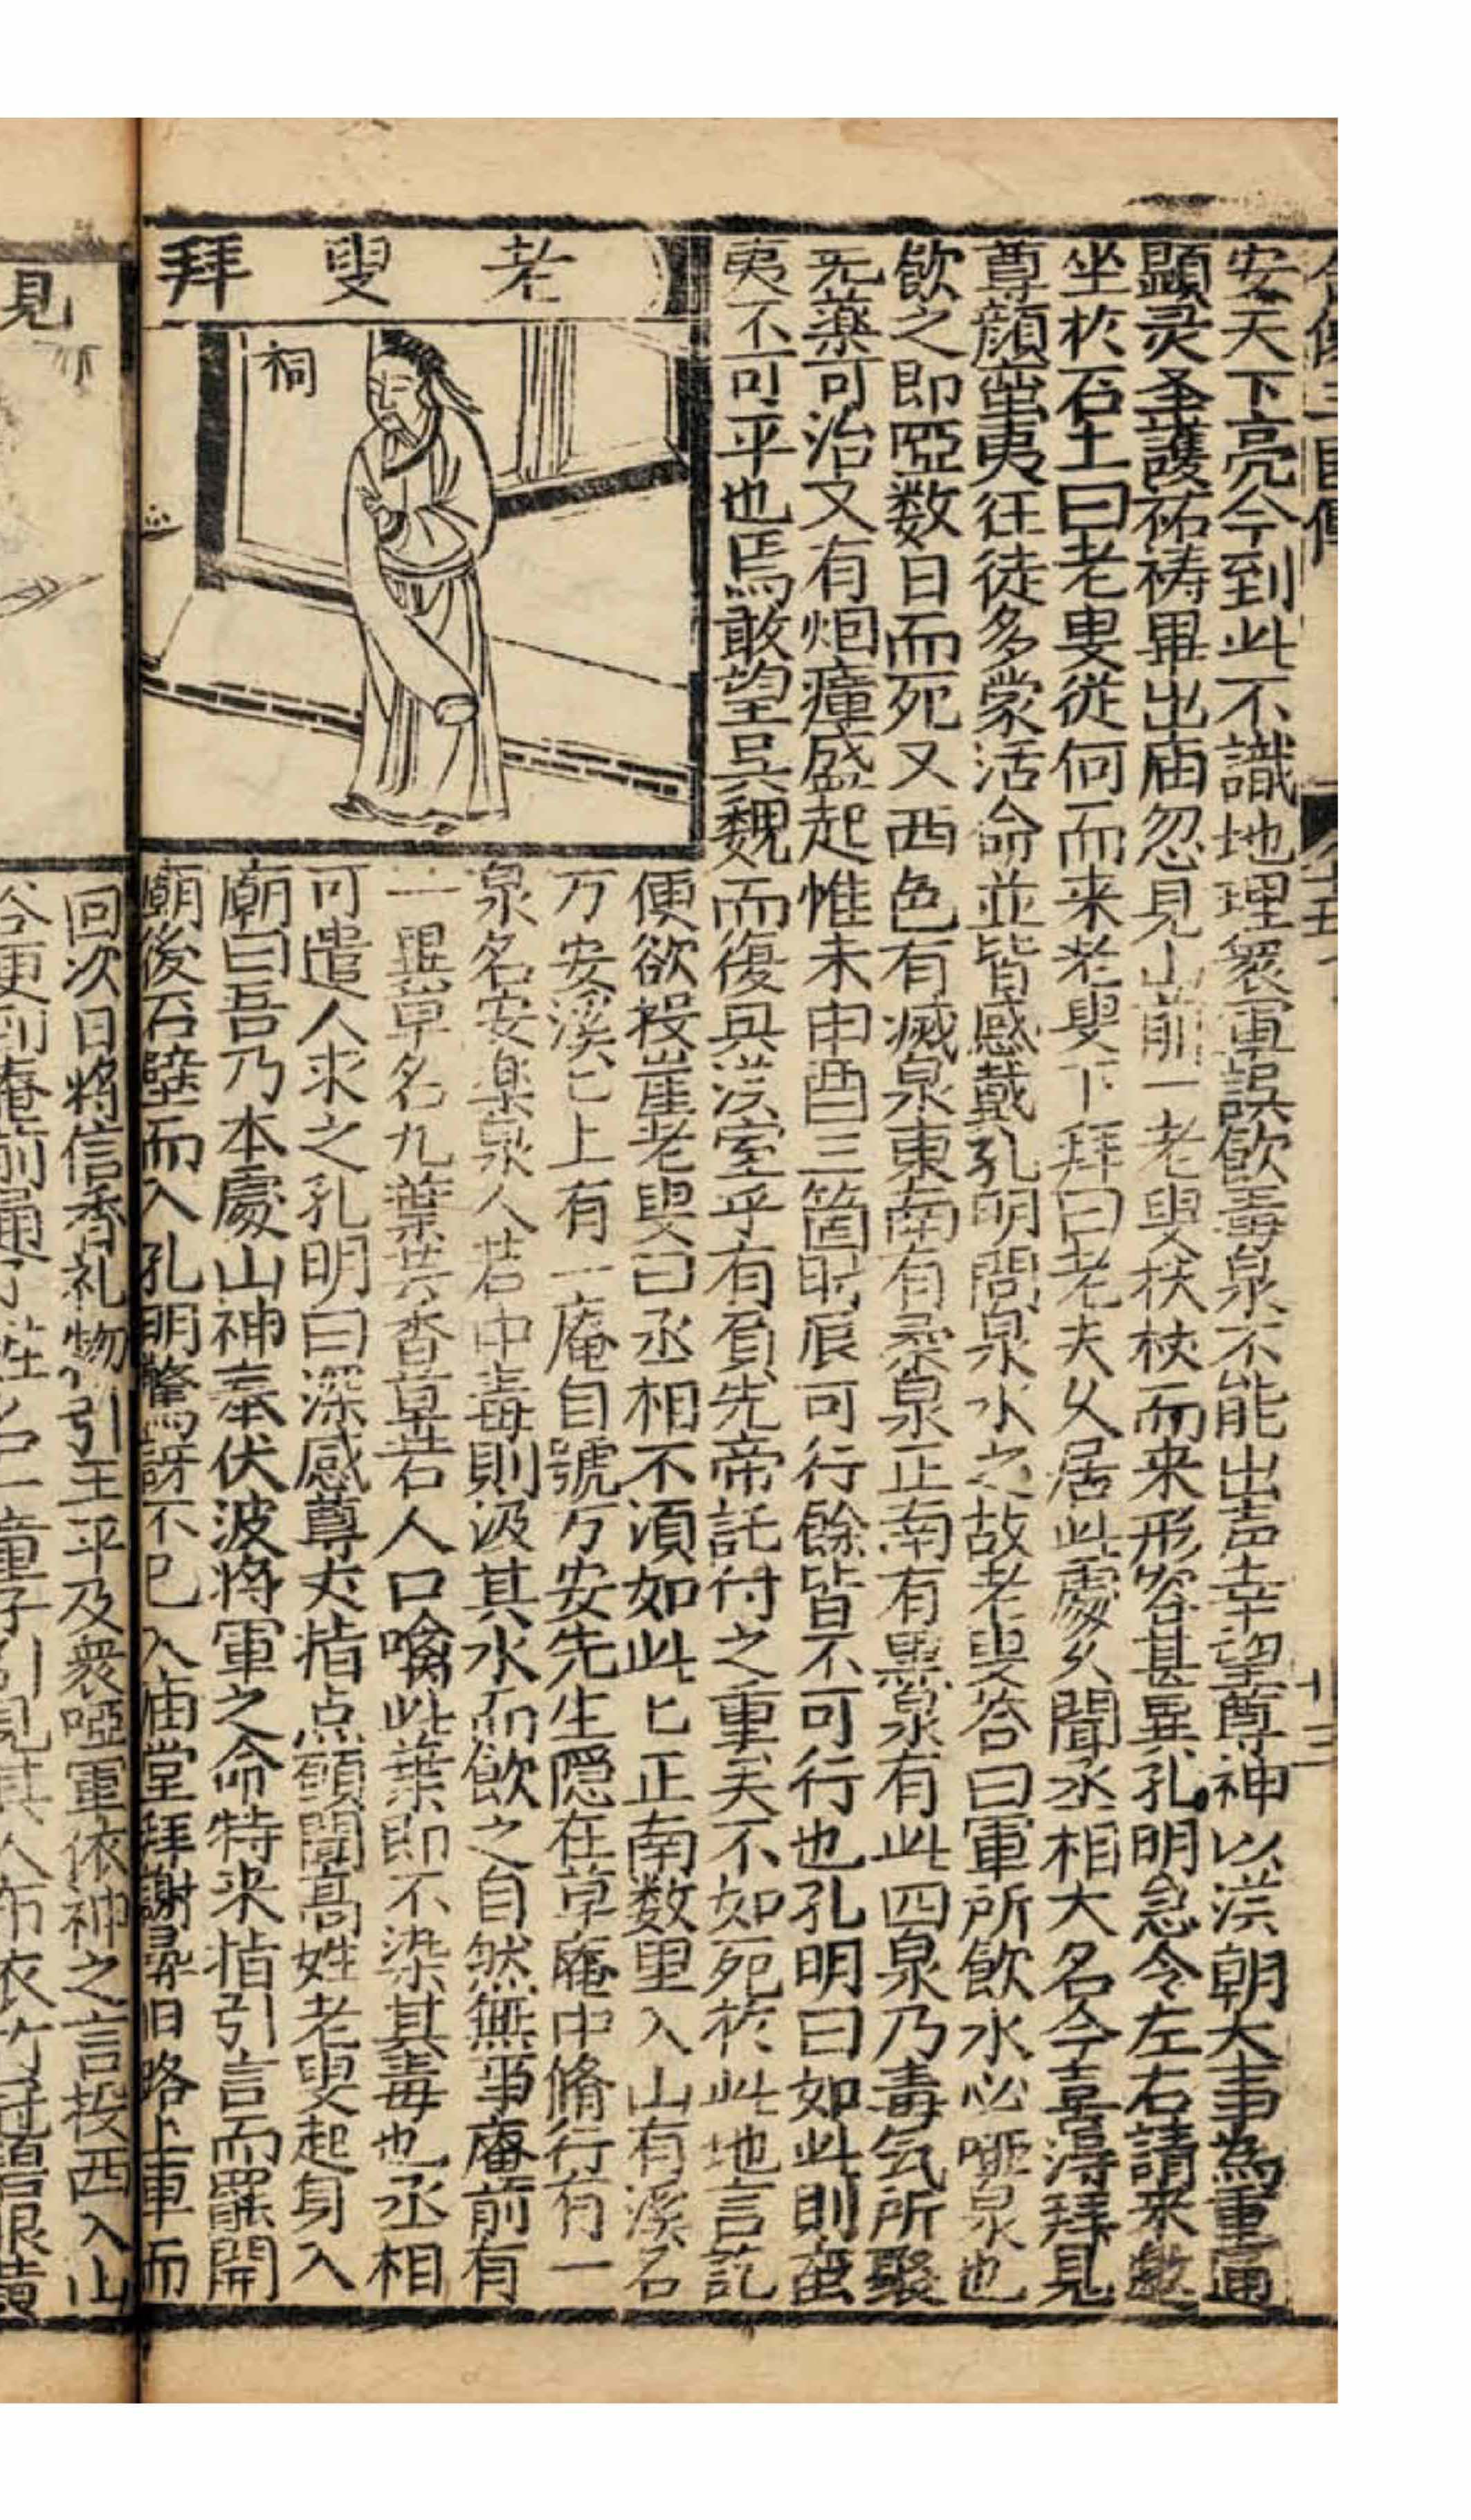 安天下亮今到此不識地理衆軍誤飲毒泉不能出声幸望尊神以漢朝大事為重通
顕灵圣護祐祷畢出庙忽見山前一老叟扶杖而来形容甚異孔明急令左右請来邀
坐於石上曰老叟従何而来老叟下拜曰老夫久居此處久聞丞相大名今喜得拜見
尊顔蛮夷往徒多蒙活命並皆感戴孔明問泉水之故老叟答曰軍所飲水必啞泉也
飲之即啞数日而死又西邑有滅泉東南有柔泉正南有黒泉有此四泉乃毒気所聚
无薬可治又有烟瘴盛起惟未申酉三箇時辰可行餘皆不可行也孔明曰如此則蛮
夷不可平也焉敢望吳魏而復興漢室乎有負先帝託付之重矣不如死於此地言訖
便欲投崖老叟曰丞相不須如此匕正南数里入山有溪名
万安溪匕上有一庵自號万安先生隠在草庵中脩行有一
泉名安楽泉人若中毒則汲其水而飲之自然無事庵前有
一異草名九葉芸香草若人口噙此葉即不染其毒也丞相
可遣人求之孔明曰深感尊丈指点願聞高姓老叟起身入
廟曰吾乃本處山神奉伏波将軍之命特来指引言而罷開
廟後石壁而入孔明驚訝不已入庙堂拜謝尋旧路上車而
老叟拜
祠
回次日将信香礼物引王平及衆啞軍依神之言投西入山
見